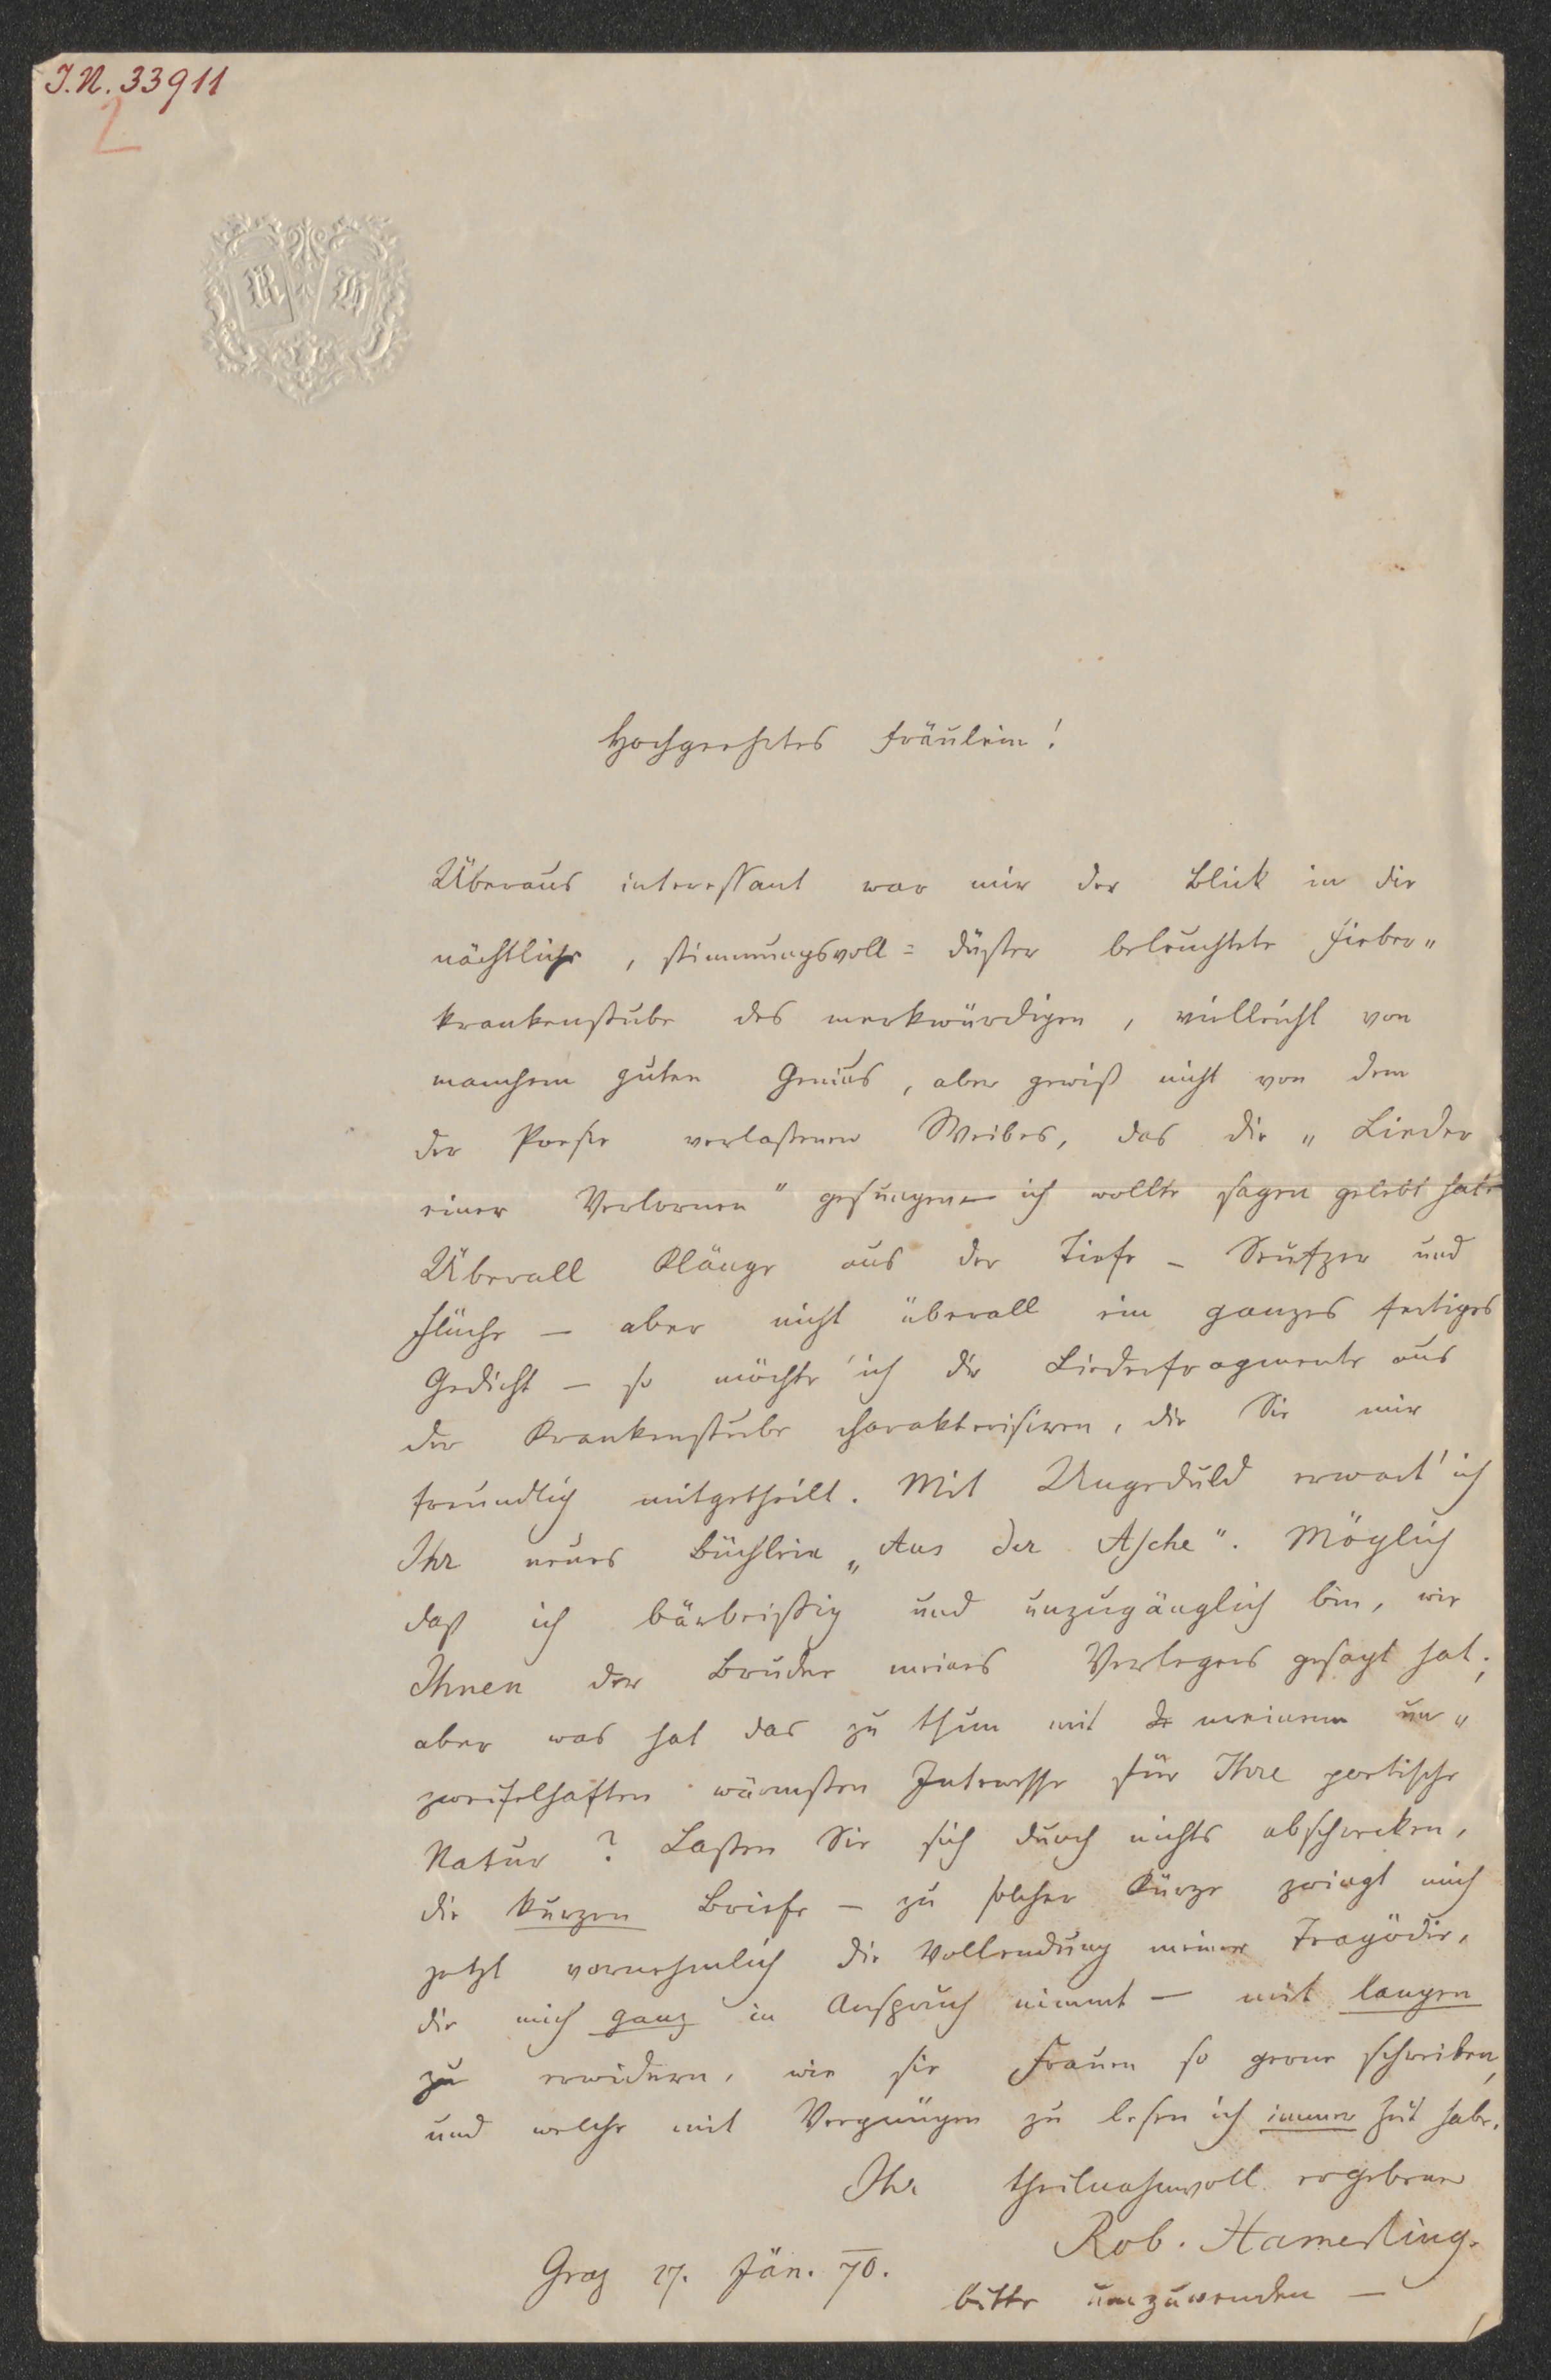 I.N. 33911
2
R H
Hochgeehrtes Fräulein!
Überaus interessant war mir der Blick in die
nächtliche, stimmungsvoll=düster beleuchtete Fieber„
krankenstube des merkwürdigen, vielleicht von
manchem guten Genius, aber gewiß nicht von dem
der Poesie verlaßenen Weibes, das die „Lieder
einer Verlornen" gesungen – ich wollte sagen gelebt hat.
Überall Klänge aus der Tiefe – Seufzer und
Flüche – aber nicht überall ein ganzes fertiges
Gedicht – so möchte ich die Liederfragmente aus
der Krankenstube charakterisiren, die Sie mir
freundlich mitgetheilt. Mit Ungeduld erwart' ich
Ihr neues Büchlein „Aus der Asche". Möglich
daß ich bärbeißig und unzugänglich bin, wie
Ihnen der Bruder meines Verlegers gesagt hat;
aber was hat das zu thun mit de meinem un„
zweifelhaften wärmsten Interesse für Ihre poetische
Natur? Laßen Sie sich durch nichts abschrecken,
die kurzen Briefe – zu solcher Kürze zwingt mich
jetzt vornehmlich die Vollendung meiner Tragödie,
die mich ganz in Anspruch nimmt – mit langen
zu erwidern, wie sie Frauen so gerne schreiben,
und welche mit Vergnügen zu lesen ich immer Zeit habe.
Ihr theilnahmvoll ergebener
Rob. Hamerling.
Graz 27. Jän. 70.
bitte umzuwenden –